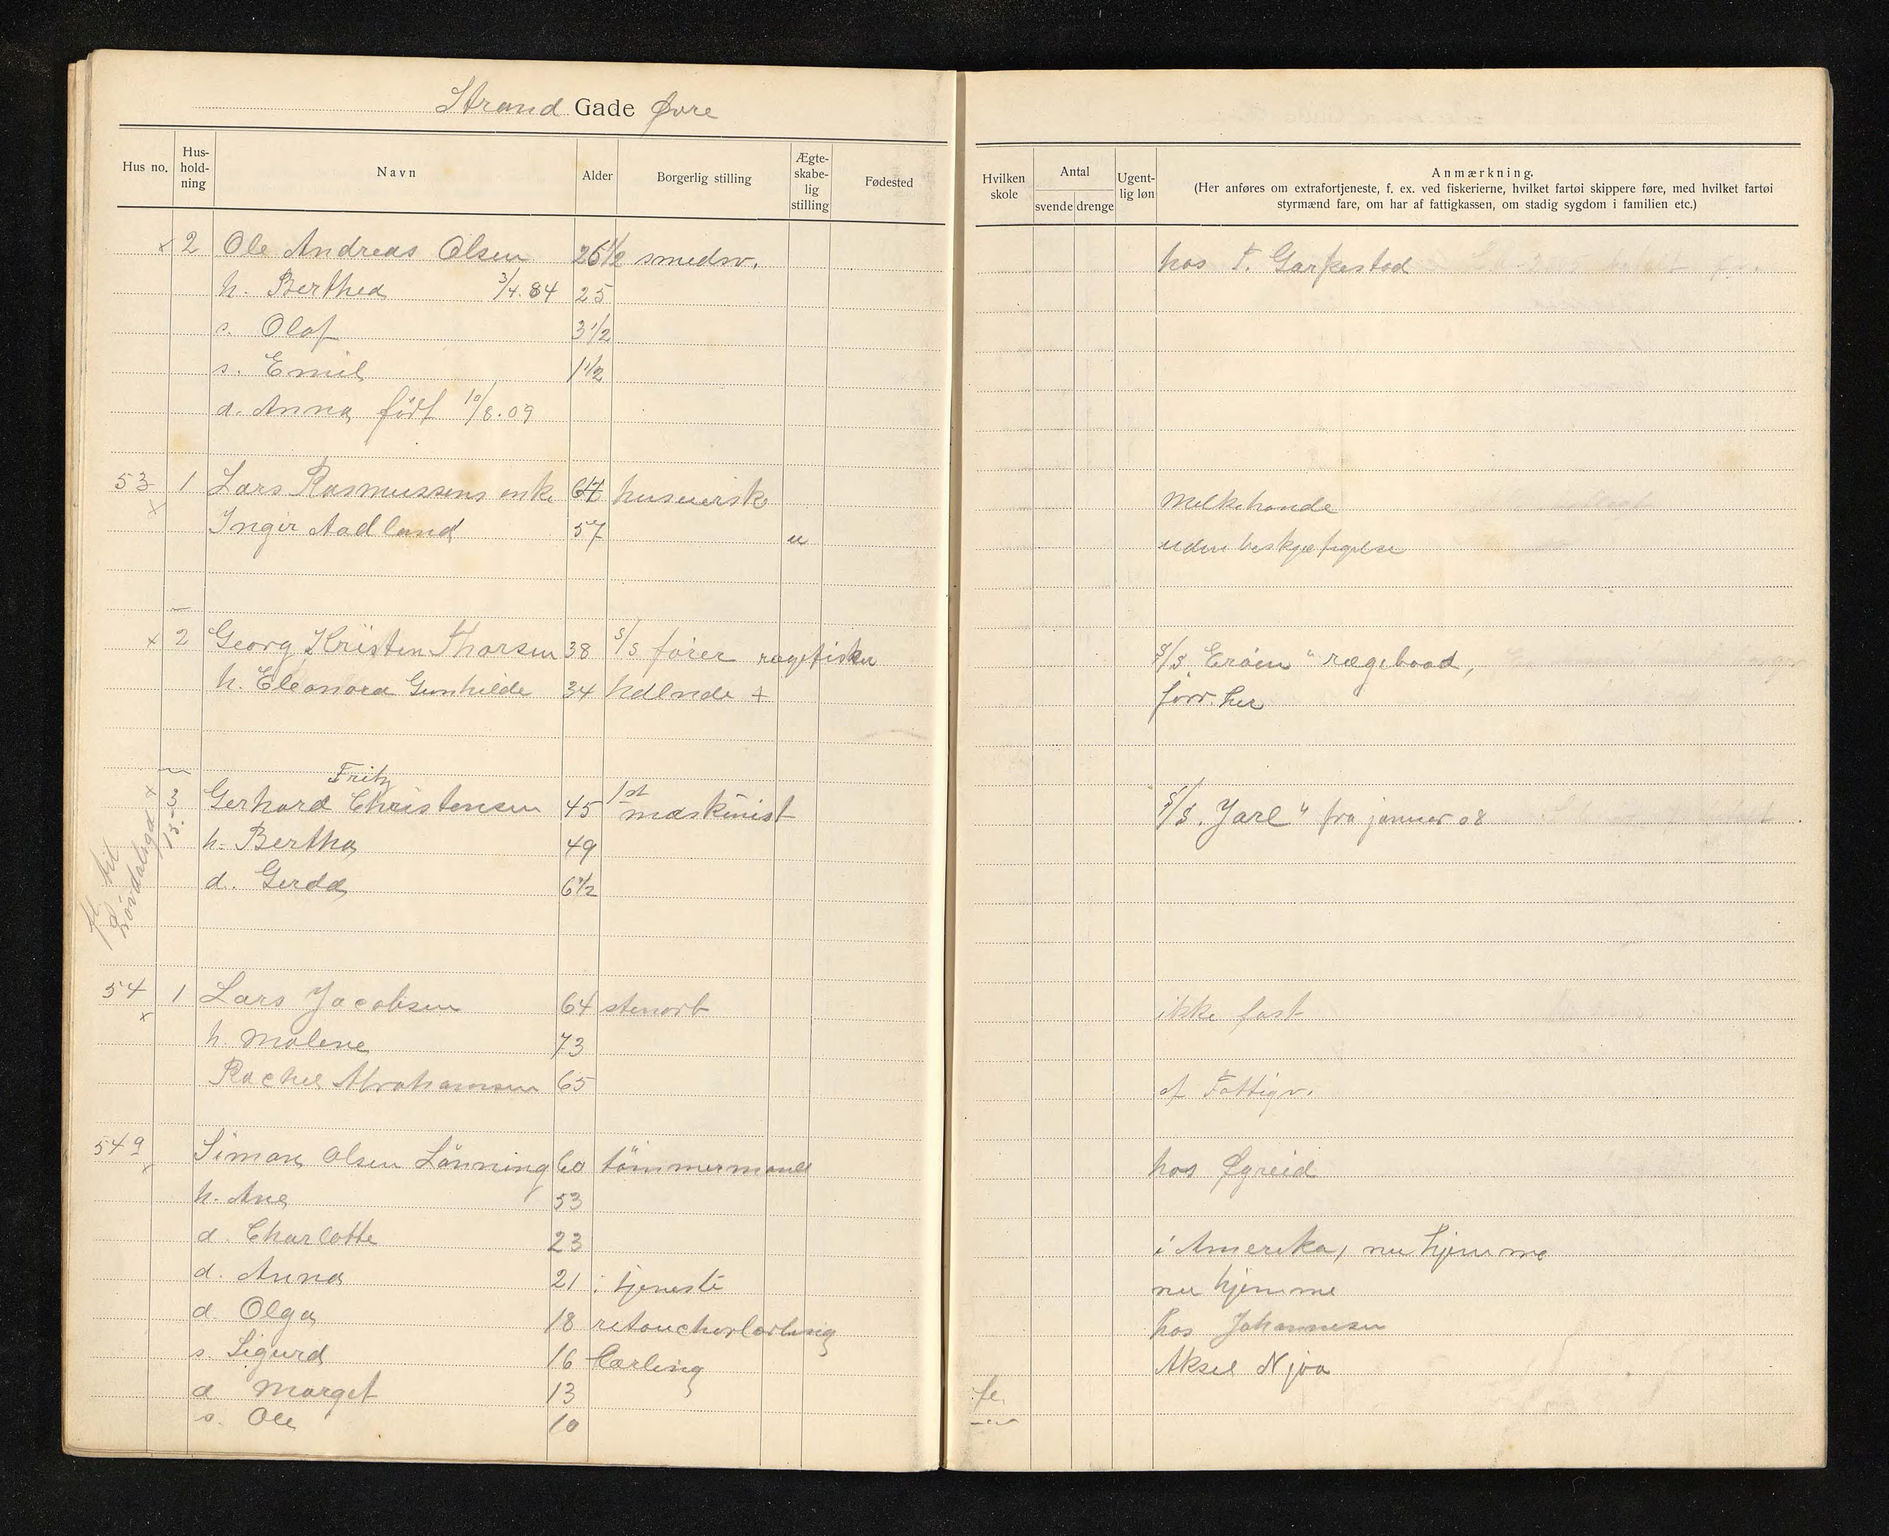 Strand Gade Øvre
Hus no. Hus-hold-ning Navn Alder Borgerlig stilling Ægte-skabe-lig stilling Fødested Hvilken skole Antal svende drenge Ugent-lig løn Anmærkning.
(Her anføres om extrafortjeneste, f. ex. ved fiskerierne, hvilket fartøi skippere føre, med hvilket fartøi
styrmænd fare, om har af fattigkassen, om stadig sygdom i familien etc.)
x 2 Ole Andreas Olsen 26 1/2 smedsv. hos T. Garpestad
h. Berthea 3/4.84 25
s. Olaf 3 1/2
s. Emil 1 1/2
d. Anna født 10/8.09
53 1 Lars Rasmussens enke 67 huseiersk Melkehande
x Inger Aadland 57 u uden beskjæftigelse
x 2 Georg Kristen Thorsen 38 s/s fører rægefisker s/s "Erøen" rægebaad,
h. Eleonora Gunhilde 34 hdlnde + forr. her
Fritz
x 3 Gerhard Christensen 45 1st maskinist s/s "Jarl" fra januar 08
13.
h. Bertha 49
d. Gerda 6 1/2
fl. til
Løvdalsgd
54 1 Lars Jacobsen 64 stenarb ikke fast
x h. Malene 73
Rachel Abrahamsen 65 af Fattigv.
54a x Simon Olsen Lønning 60 tømmermand hos Øgreid
h. Ane 53
d. Charlotte 23 i Amerika, nu hjemme
d. Anna 21 i tjeneste nu hjemme
d. Olga 18 retoucherlærling hos Johannesen
s. Sigurd 16 lærling Aksel Njaa
d Marget 13 fe.
s. Ole 10